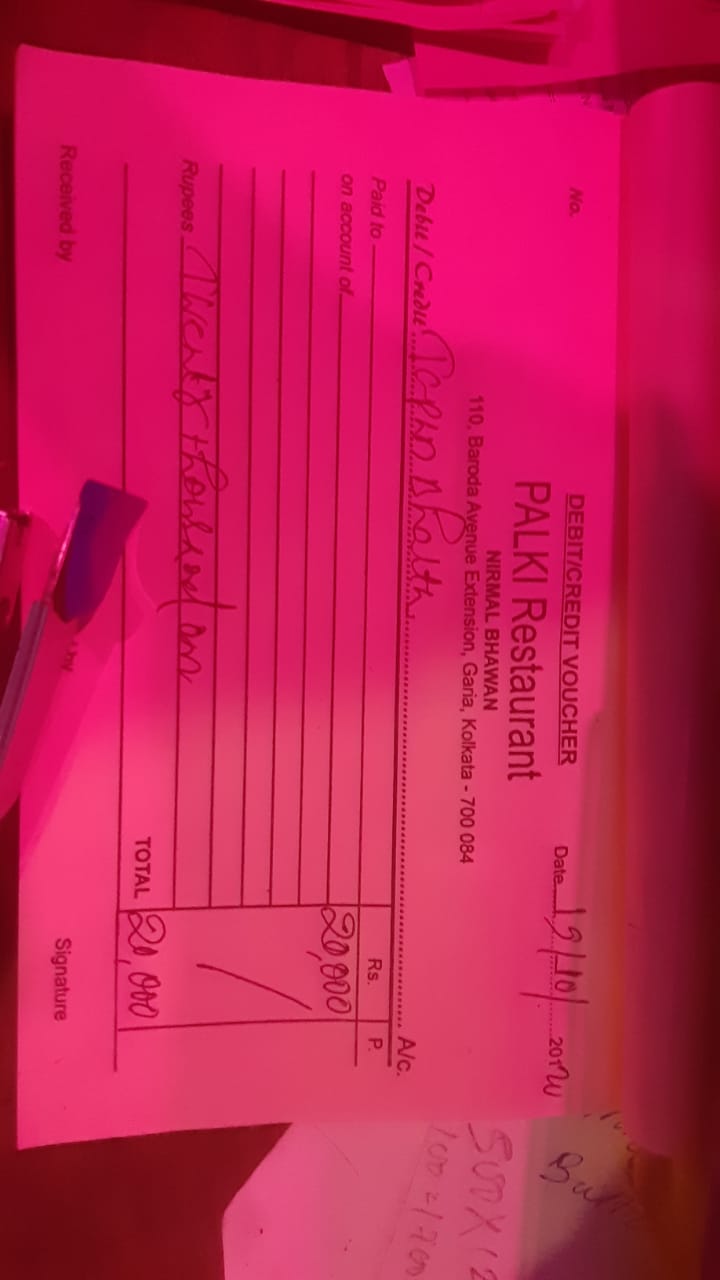 DEBIT/CREDIT VOUCHER
No.
Date 19/10/ 201
PALKI Restaurant
NIRMAL BHAWAN
110, Baroda Avenue Extension, Garia, Kolkata - 700 084
Debit / Credit A/c.
Paid to Rs. P.
on account of 20,000
Rupees Twenty thousand
TOTAL 20,000
Received by by Signature
500X12